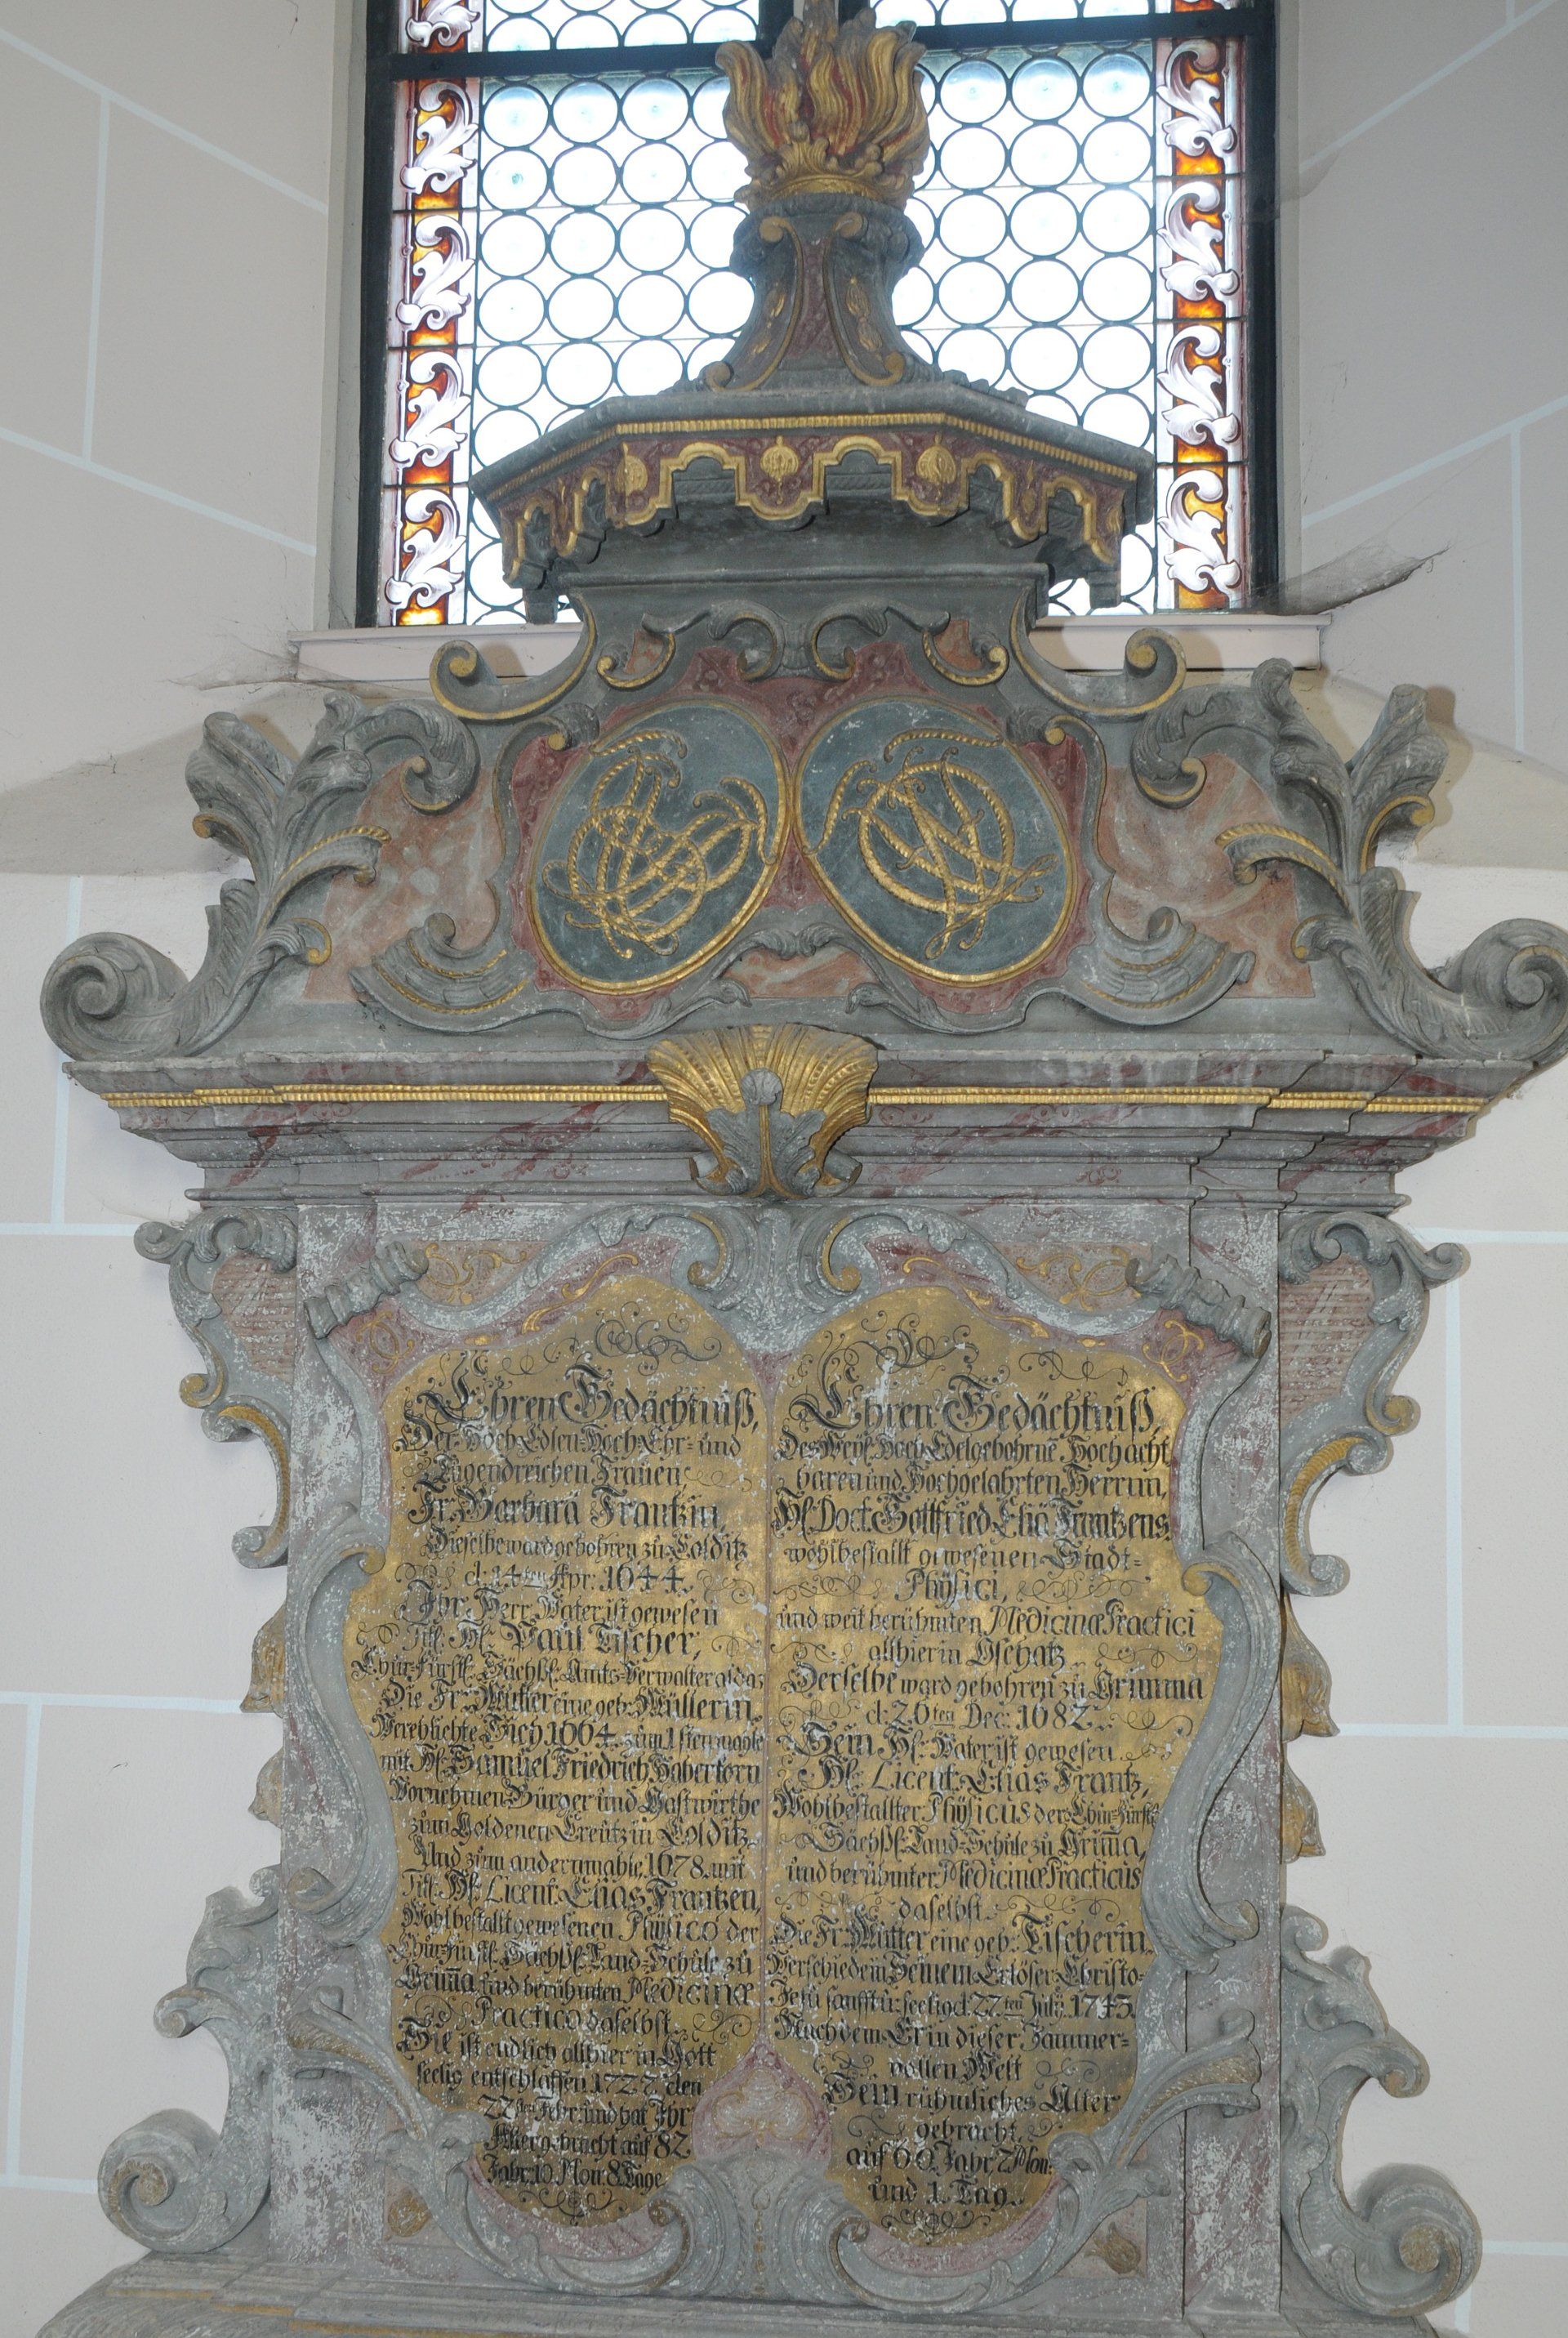 Ehren Gedächtniß,
Der Hoch Edlen Hoch Ehr- und
Tugendreichen Frauen
Fr. Barbara Frantzin,
Dieselbe ward gebohren zu Colditz
d. 14ten Apr: 1644.
Ihr Herr Vater ist gewesen
Tit. H. Paul Tischer,
Chur-Fürstl. Sächß. Amts-Verwalter aldaz
Die Fr. Mutter eine geb. Müllerin.
Verehlichte Sich 1664. zum 1stenmahle
mit H. Samuel Friedrich Haberkorn
Vornehmen Bürger und Gastwirthe
zum Goldenen Creutz in Colditz.
Und zum andernmahle 1678. mit
Tit. H. Licent. Elias Frantzen,
Wohlbestallt gewesenen Physico der
Chur-Fürstl. Sächß. Land-Schule zu
Grima und berühmten Medicinæ
Practico daselbst.
Sie ist endlich allhier in Gott
seelig entschlaffen 1727. den
22sten Febr. und hat Ihr
Alter gebracht auf 82
Jahr 10 Mon. 8 Tage.
Ehren Gedächtniß
Des Weyl. Hoch Edelgebohrnē Hochacht
baren und Hochgelahrten Herrnn,
H. Doct. Gottfried Eliä Frantzens
wohlbestallt gewesenen Stadt-
Physici,
und weit berühmten Medicinæ Practici
allhier in Oschatz
Derselbe ward gebohren zu Grimma
d. 26ten Dec: 1682.
Sein H. Vater ist gewesen
H. Licent. Elias Frantz,
Wohlbestallter Physicus der Chur-Fürstl.
Sächß. Land-Schule zu Grima,
und berühmter Medicinæ Practicus
daselbst.
Die Fr. Mutter eine geb. Tischerin.
Verschied in Seinem Erlöser Christo
Jesu sanfft u. seelig d. 27ten July. 1743.
Nachdem Er in dieser Jammer-
vollen Welt
Sein rühmliches Alter
gebracht
auf 60 Jahr 7 Mon.
und 1. Tag.